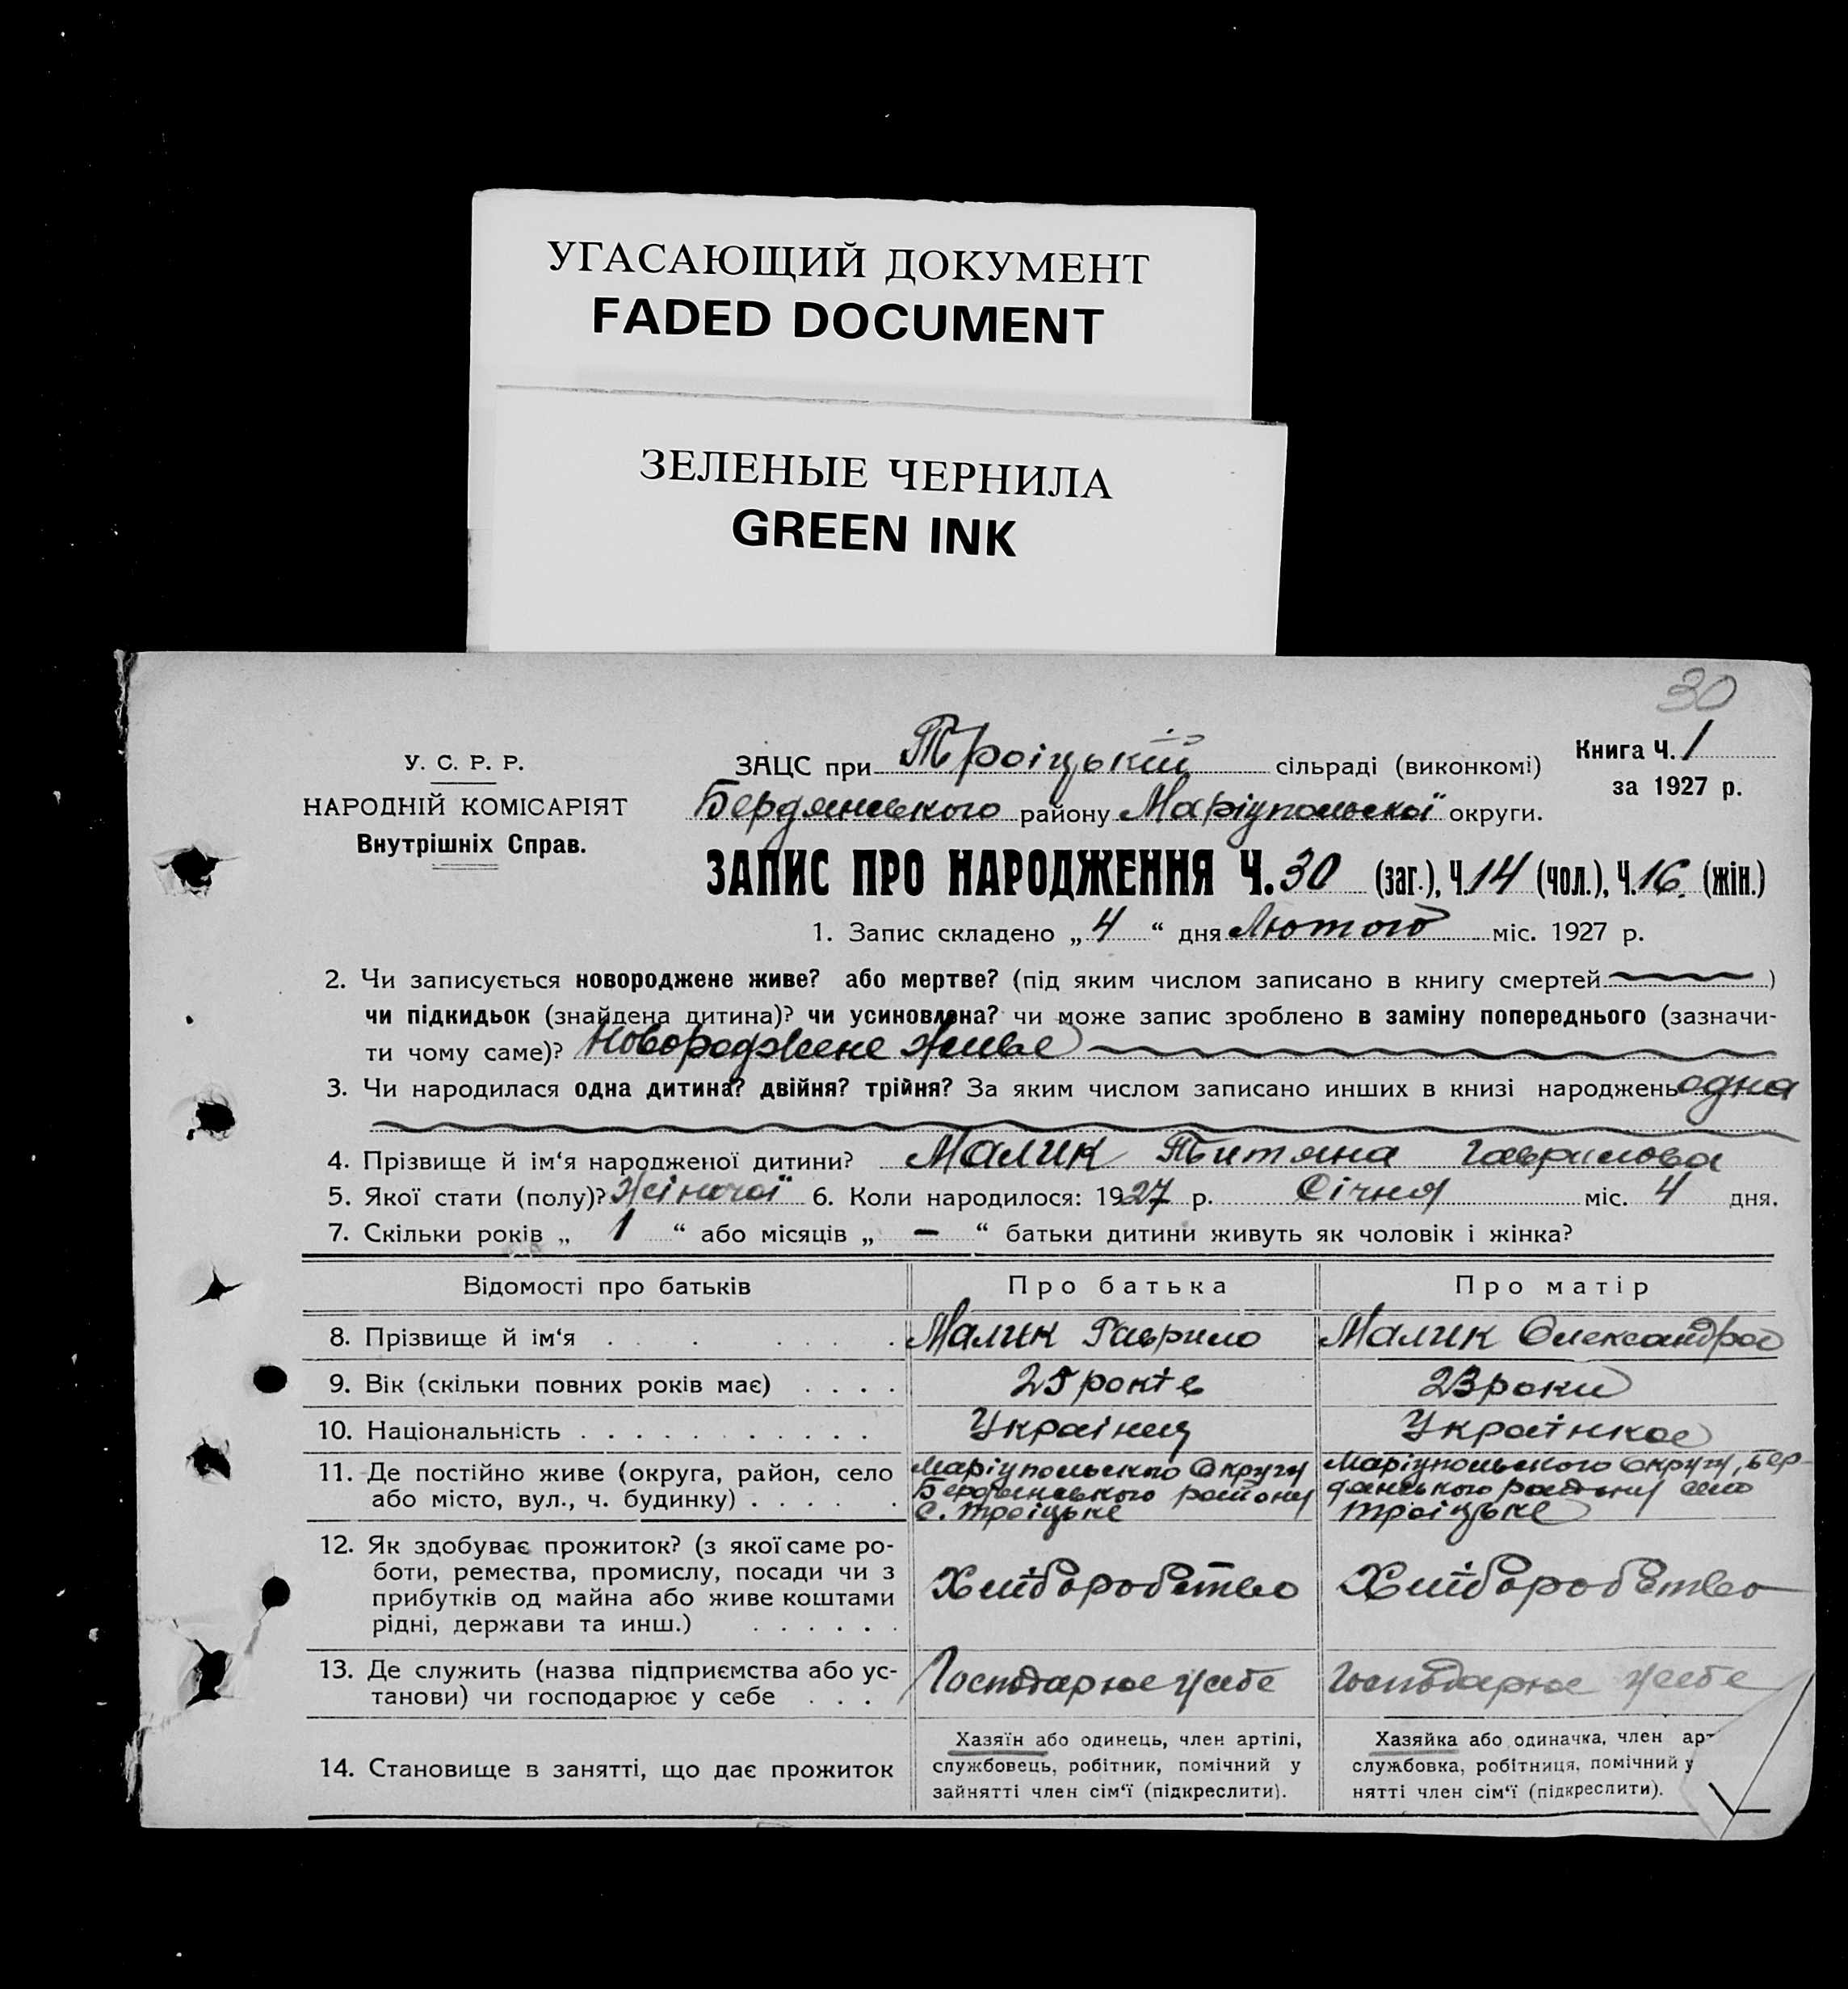 УГАСАЮЩИЙ ДОКУМЕНТ
FADED DOCUMENT
ЗЕЛЕНЫЕ ЧЕРНИЛА
GREEN INK
30
У. С. Р. Р.
НАРОДНІЙ КОМІСАРІЯТ
Внутрішніх Справ.
ЗАЦС при Троіцькій сільраді (виконкомі)
Книга Ч. 1
за 1927 р.
Бердянського району Маріупольскоі округи.
ЗАПИС ПРО НАРОДЖЕННЯ Ч. 30 (заг.), Ч. 14 (чол.), Ч. 16. (жін.)
1. Запис складено „ 4 “ дня Лютого міс. 1927 р.
2. Чи записується новороджене живе? або мертве? (під яким числом записано в книгу смертей )
чи підкидьок (знайдена дитина)? чи усиновлена? чи може запис зроблено в заміну попереднього (зазначи-
ти чому саме)? Новороджене живе
3. Чи народилася одна дитина? двійня? трійня? За яким числом записано инших в книзі народжень одна
4. Прізвище й ім‘я народженої дитини? Малик Титяна Гаврилова
5. Якої стати (полу)? Жіночоі 6. Коли народилося: 1927 р. Січня міс. 4 дня.
7. Скільки років „ 1 “ або місяців „ — “ батьки дитини живуть як чоловік і жінка?
Відомості про батьків Про батька Про матір
8. Прізвище й ім‘я . . . . . . Малик Гаврило Малик Олександра
9. Вік (скільки повних років має) . . . . 25 років 23 роки
10. Національність . . . . . . . . . . . Украінец Украінка
11. Де постійно живе (округа, район, село
або місто, вул., ч. будинку) . . . . .
Маріупольского Округу
Бердянського району
с. Троіцьке
Маріупольского Округу, Бер-
дянського району село
Троіцьке
12. Як здобуває прожиток? (з якої саме ро-
боти, ремества, промислу, посади чи з
прибутків од майна або живе коштами
рідні, держави та инш.) . . . . . .
Хліборобство Хліборобство
13. Де служить (назва підприємства або ус-
танови) чи господарює у себе . . .
Господарює у себе Господарює у себе
14. Становище в занятті, що дає прожиток
Хазяїн або одинець, член артілі,
службовець, робітник, помічний у
зайнятті член сім‘ї (підкреслити).
Хазяйка або одиначка, член арт
службовка, робітниця, помічний у
нятті член сім‘ї (підкреслити).